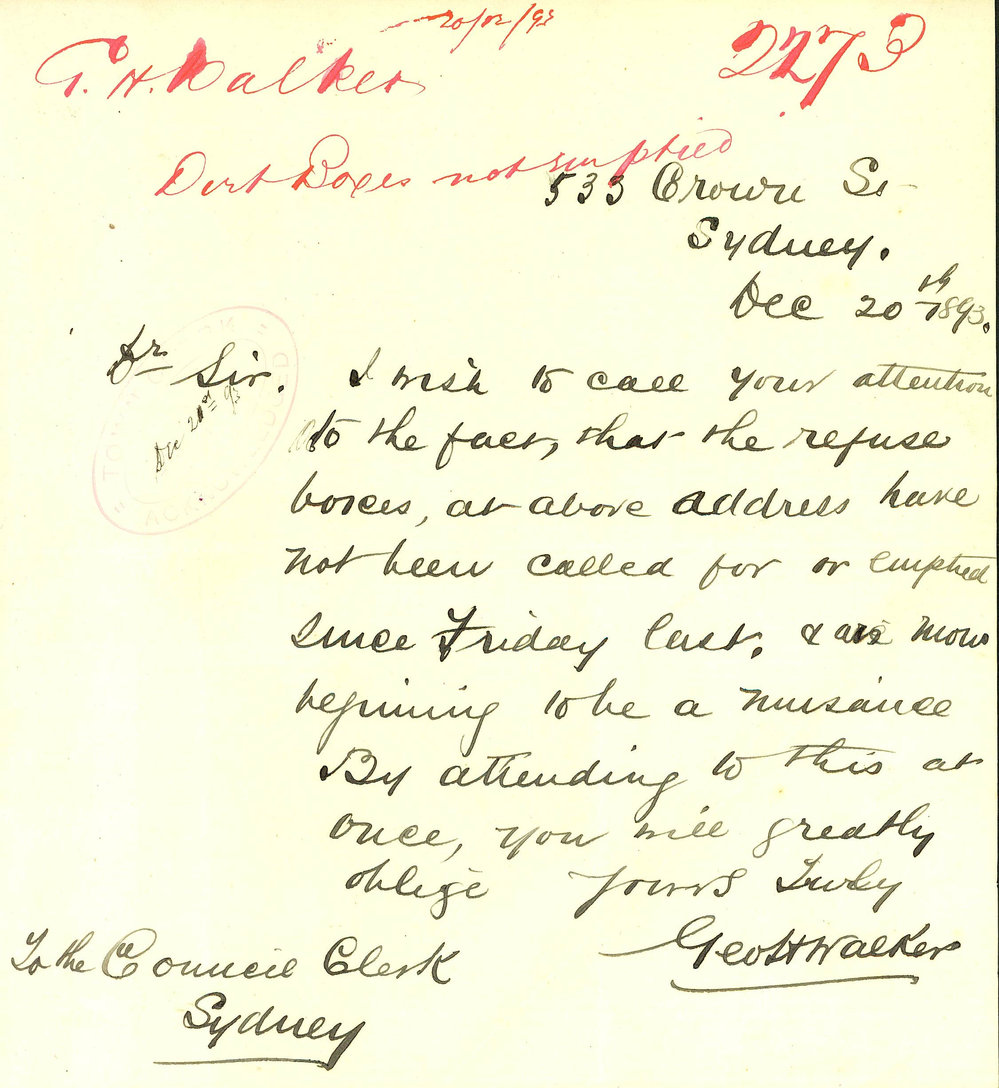 20/12/93
G. H. Walker
2273
Dirt Boxes not emptied
533 Crown St
Sydney.
Dec 20th 1893.
Dr Sir. I wish to call your attention
to the fact, that the refuse
boxes, at above address have
not been called for or emptied
since Friday last. & are now
begining to be a nuisance
By attending to this at
once, you will greatly
oblige Yours Truly
Geo H Walker
To the Council Clerk
Sydney
TOWN CLERK
Dec 21st 93
ACKNOWLEDGED